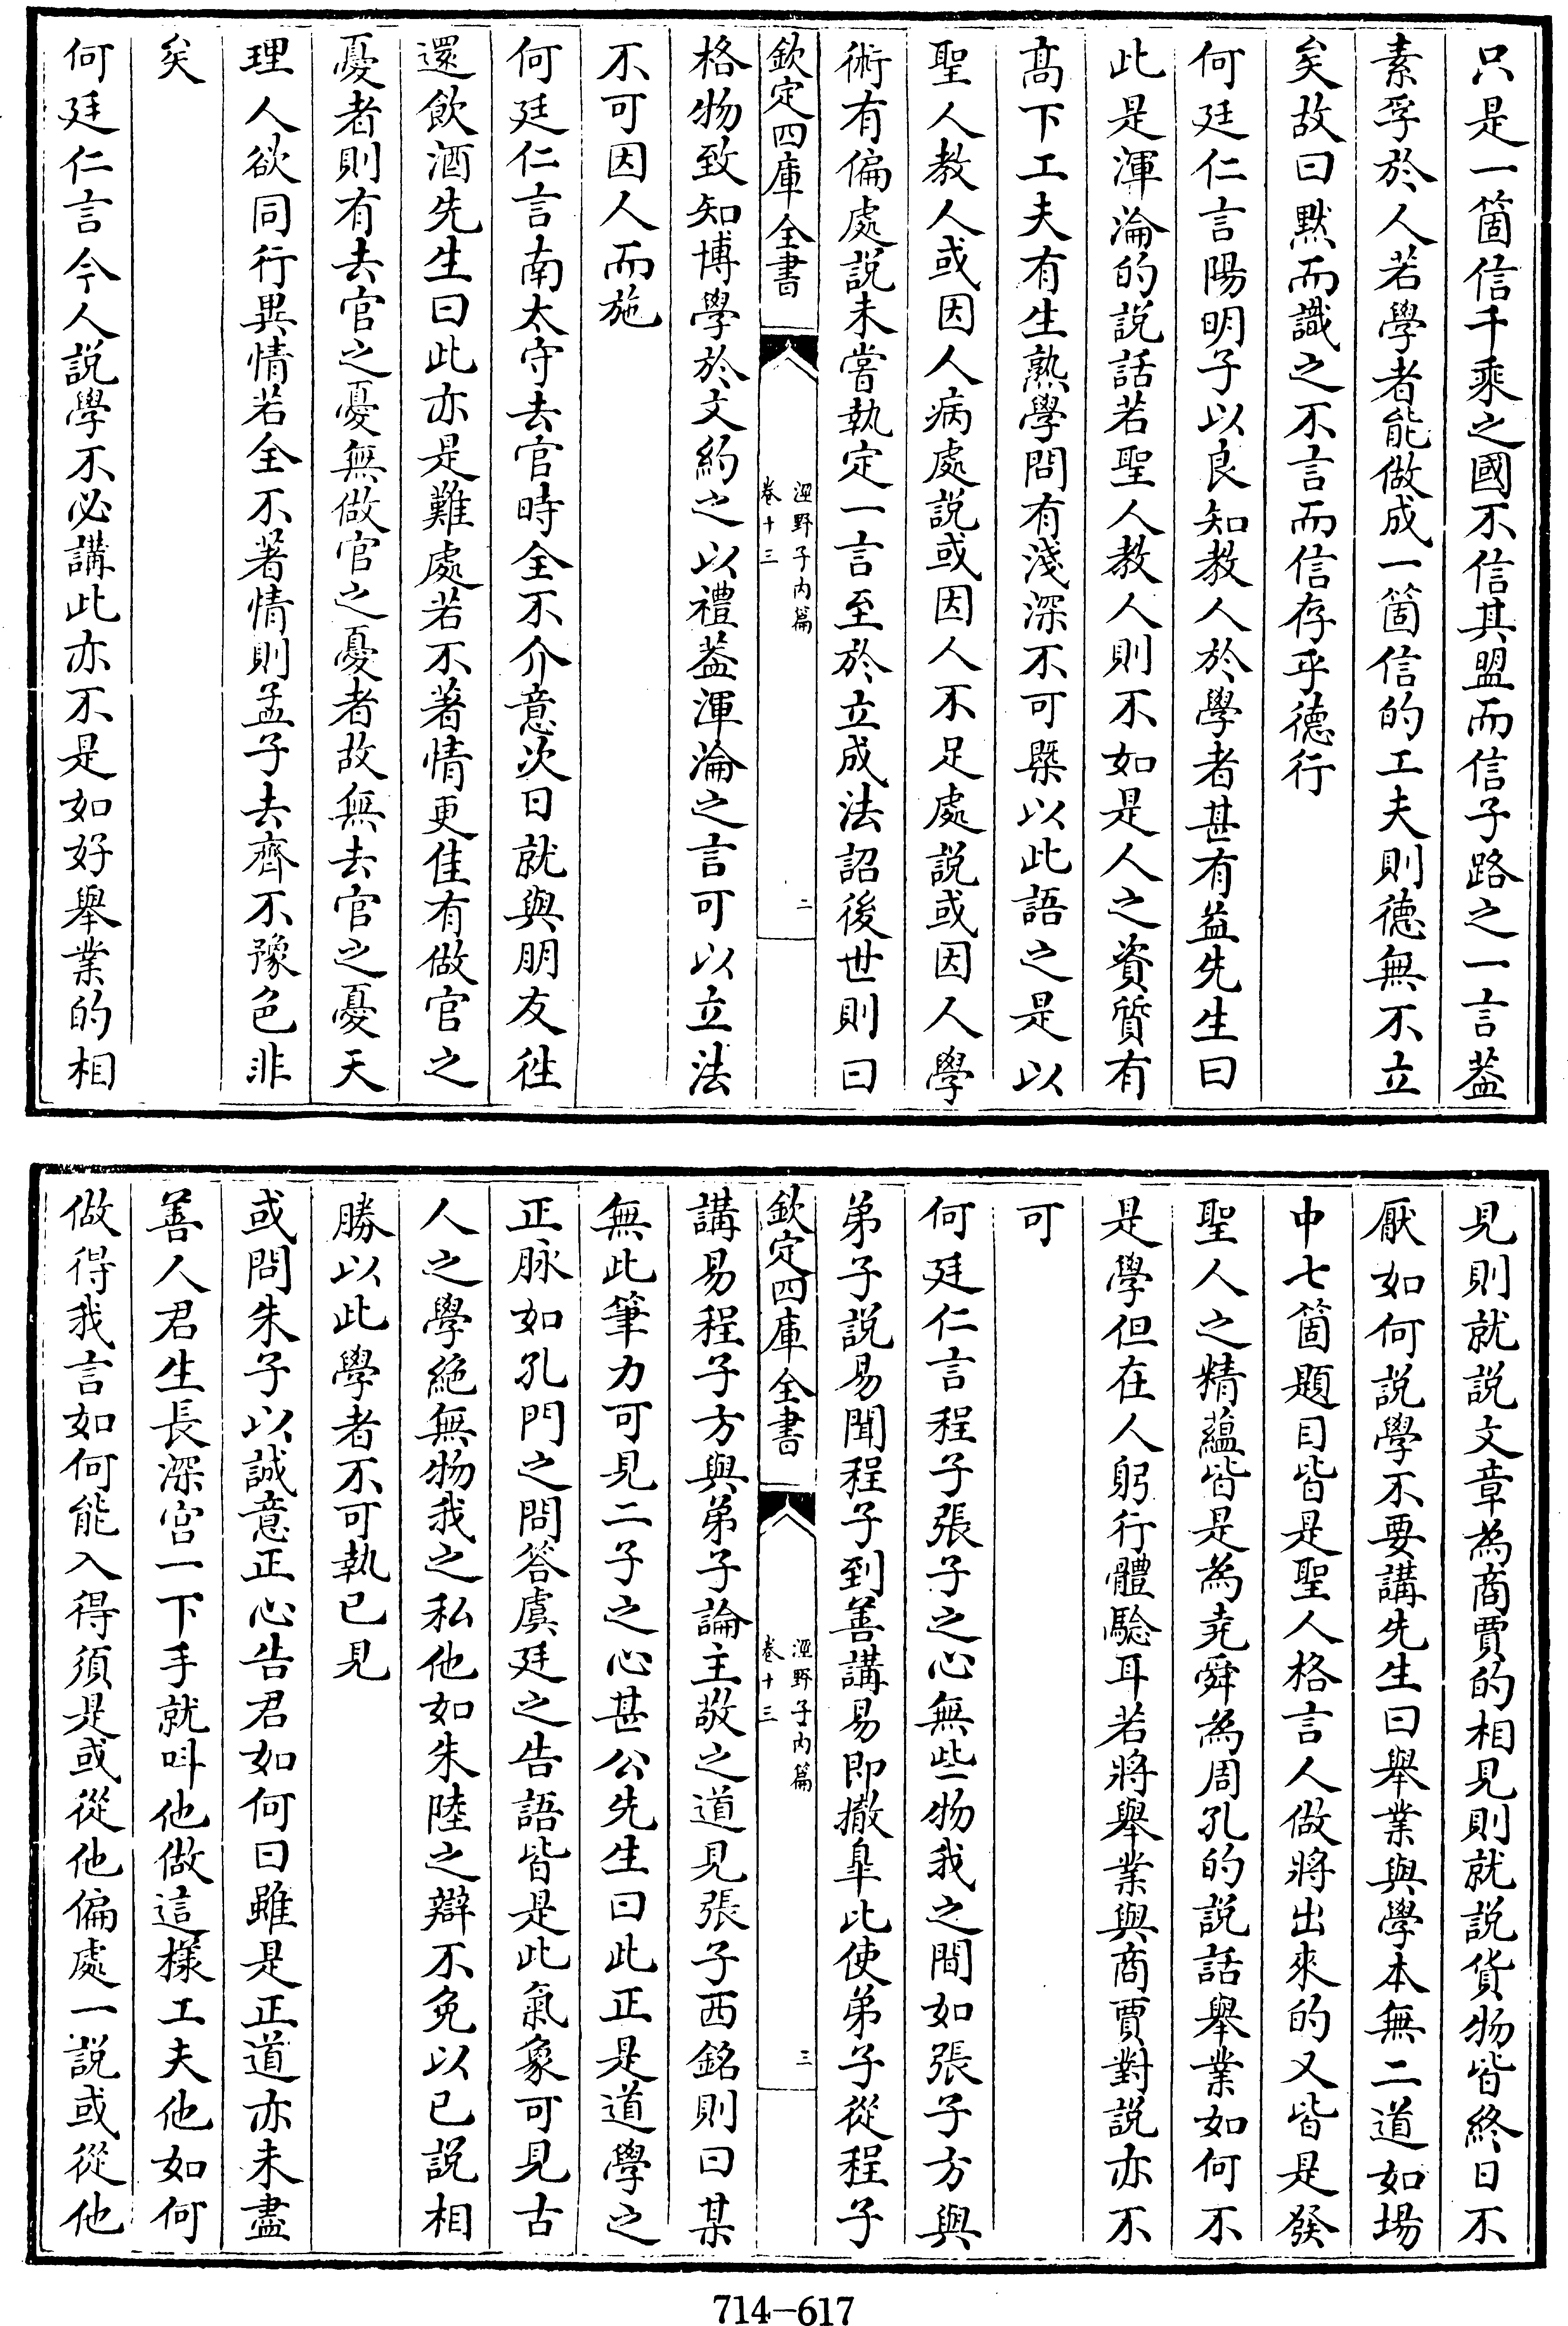 只是一箇信千乘之國不信其盟而信子路之一言葢
素孚於人若學者能做成一箇信的工夫則德無不立
矣故曰黙而識之不言而信存乎德行
何廷仁言陽明子以良知教人於學者甚有益先生曰
此是渾淪的説話若聖人教人則不如是人之資質有
髙下工夫有生熟學問有淺深不可槩以此語之是以
聖人教人或因人病處説或因人不足處説或因人學
術有偏處説未嘗執定一言至於立成法詔後世則曰
欽定四庫全書
涇野子内篇
卷十三
二
格物致知博學於文約之以禮葢渾淪之言可以立法
不可因人而施
何廷仁言南太守去官時全不介意次日就與朋友徃
還飲酒先生曰此亦是難處若不著情更佳有做官之
憂者則有去官之憂無做官之憂者故無去官之憂天
理人欲同行異情若全不著情則孟子去齊不豫色非
矣
何廷仁言今人説學不必講此亦不是如好舉業的相
見則就説文章為商賈的相見則就説貨物皆終日不
厭如何説學不要講先生曰舉業與學本無二道如場
中七箇題目皆是聖人格言人做將出來的又皆是發
聖人之精蘊皆是為堯舜為周孔的説話舉業如何不
是學但在人躬行體驗耳若將舉業與商賈對説亦不
可
何廷仁言程子張子之心無些物我之間如張子方與
弟子説易聞程子到善講易即撤臯比使弟子從程子
欽定四庫全書
涇野子内篇
卷十三
三
講易程子方與弟子論主敬之道見張子西銘則曰某
無此筆力可見二子之心甚公先生曰此正是道學之
正脉如孔門之問答虞廷之告語皆是此氣象可見古
人之學絶無物我之私他如朱陸之辯不免以已説相
勝以此學者不可執已見
或問朱子以誠意正心告君如何曰雖是正道亦未盡
善人君生長深宫一下手就呌他做這様工夫他如何
做得我言如何能入得須是或從他偏處一説或從他
714-617